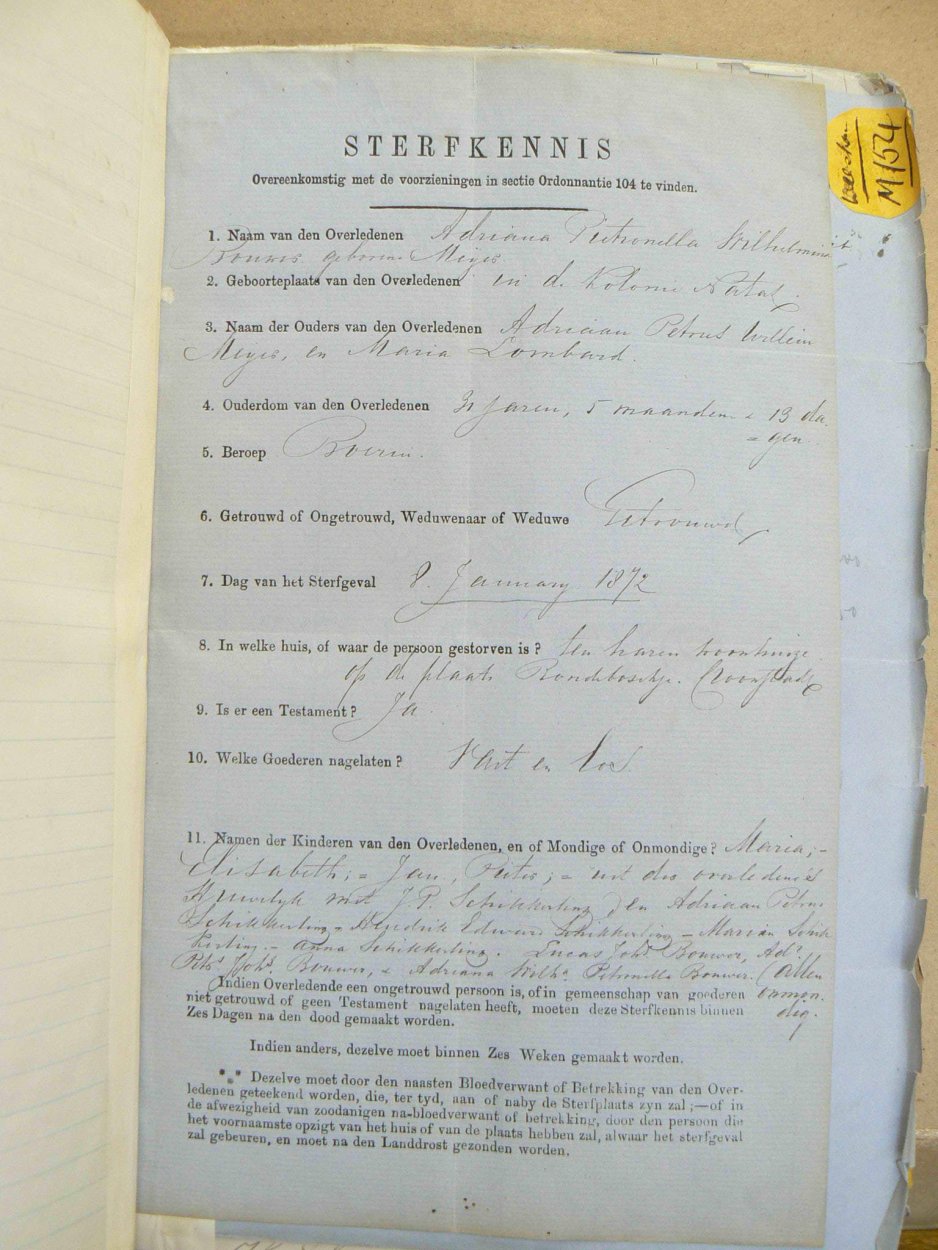 STERFKENNIS
Overeenkomstig met de voorzieningen in sectie Ordonnantie 104 te vinden.
M/154
1. Naam van den Overledenen Adriana Petronella Wilhelmina
Bouwer geboren Meyer
2. Geboorteplaats van den Overledenen in de Kolonie Natal.
3. Naam der Ouders van den Overledenen Adriaan Petrus Willem
Meyer, en Maria Lombard.
4. Ouderdom van den Overledenen 31 jaren, 5 maanden & 13 da
= gen
5. Beroep Boerin.
6. Getrouwd of Ongetrouwd, Weduwenaar of Weduwe Getrouwd
7. Dag van het Sterfgeval 8. January 1872
8. In welke huis, of waar de persoon gestorven is? ten haren woonhuize
op de plaats Rondeboschje. Croonstad
9. Is er een Testament? Ja.
10. Welke Goederen nagelaten? Vast en los.
11. Namen der Kinderen van den Overledenen, en of Mondige of Onmondige? Maria; -
Elisabeth; = Jan, Pieter; = uit des overledenes
Huwelyk met J.P. Schikkerling) en Adriaan Petrus
Schikkerling - Hendrik Edward Schikkerling - Maria Schik
kerling. - Anna Schikkerling. Lucas Johs. Bouwer, Adr.
Petrs Johs. Bouwer, & Adriana Wilha. Petronella Bouwer. (Allen
onmon.
dig.
Indien Overledende een ongetrouwd persoon is, of in gemeenschap van goederen
niet getrouwd of geen Testament nagelaten heeft, moeten deze Sterfkennis binnen
Zes Dagen na den dood gemaakt worden.
Indien anders, dezelve moet binnen Zes Weken gemaakt worden.
*** Dezelve moet door den naasten Bloedverwant of Betrekking van den Over-
ledenen geteekend worden, die, ter tyd, aan of naby de Sterfplaats zyn zal;—of in
de afwezigheid van zoodanigen na-bloedverwant of betrekking, door den persoon die
het voornaamste opzigt van het huis of van de plaats hebben zal, alwaar het sterfgeval
zal gebeuren, en moet na den Landdrost gezonden worden.